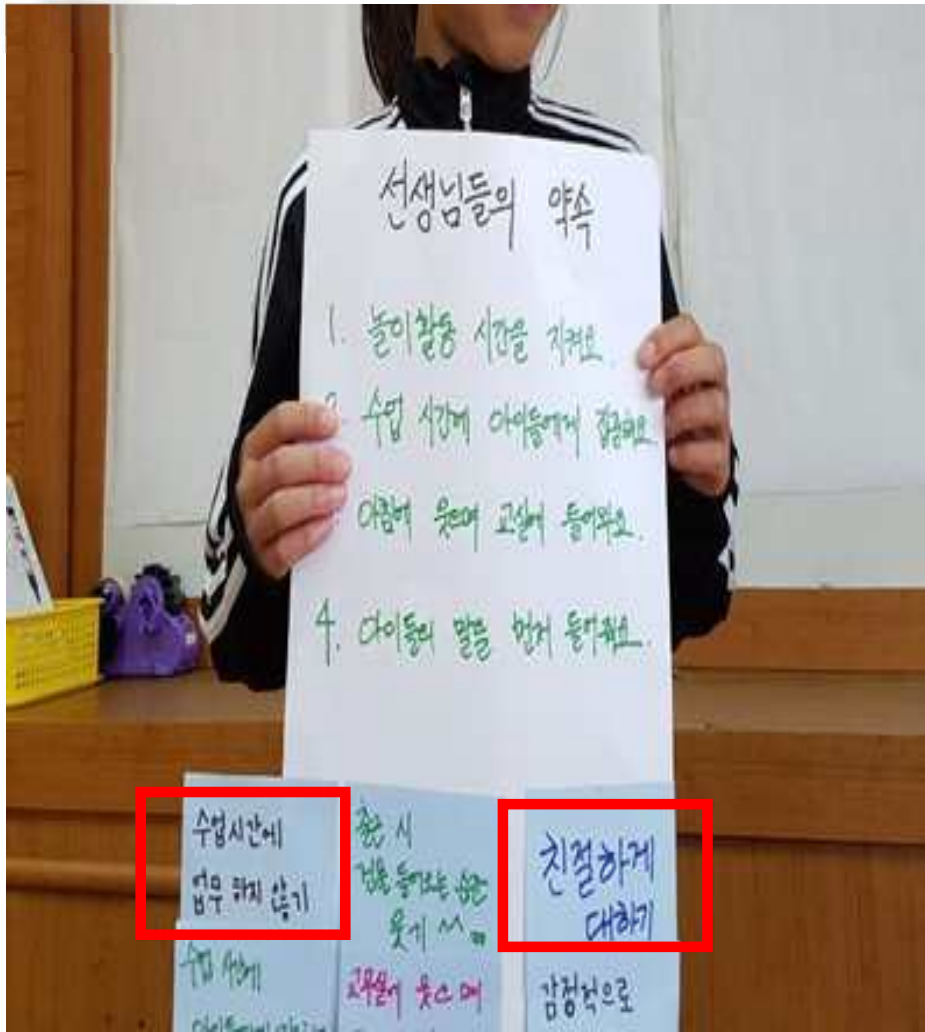 선생님들의 약속
1. 놀이활동 시간을 지켜요.
수업 시간에 아이들에게 집중해요
아침에 웃으며 교실에 들어와요.
4. 아이들의 말을 먼저 들어줘요.
수업시간에
업무 하지 않기
출근 시
들어오는 순간
웃기 ^^
친절하게
대하기
수업 시간에
교무실에 웃으며
감정적으로